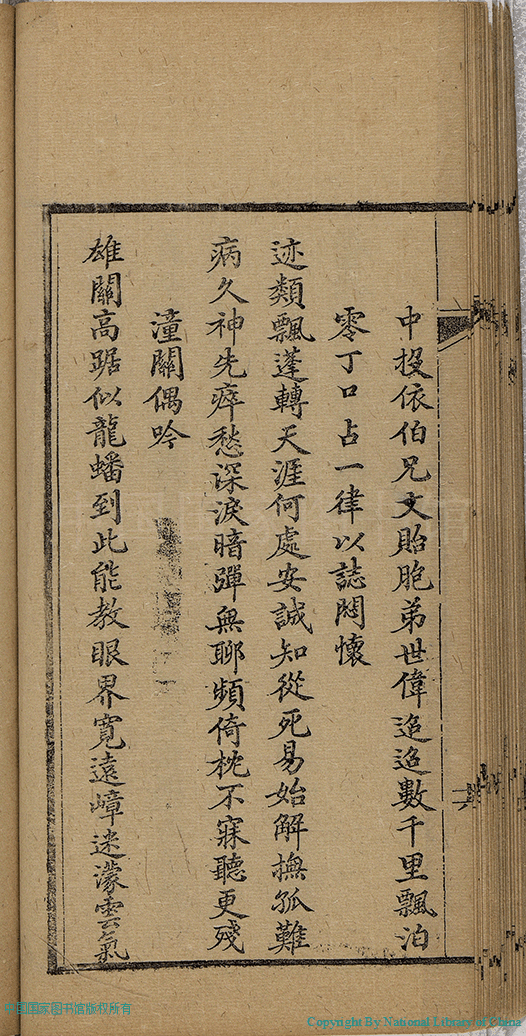 中投依伯兄文貽胞弟世偉迢迢數千里飄泊
零丁口占一律以誌悶懷
迹類飄蓬轉天涯何處安誠知從死易始解撫孤難
病久神先瘁愁深淚暗彈無聊頻倚枕不寐聽更殘
潼關偶吟
雄關高踞似龍蟠到此能教眼界寬遠嶂迷濛雲氣
中国国家图书馆版权所有
Copyright By National Library of China